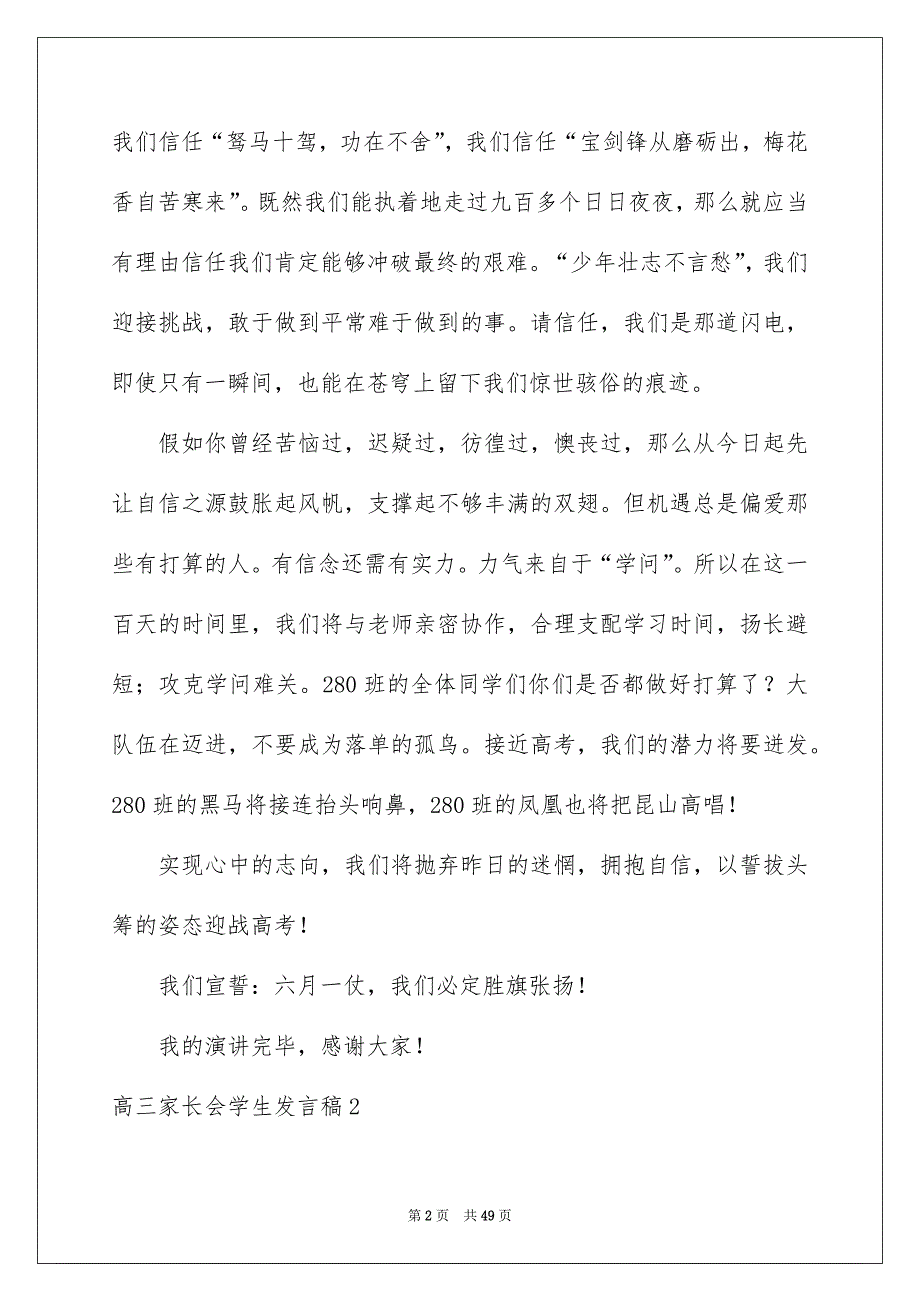 我们信任“驽马十驾，功在不舍”，我们信任“宝剑锋从磨砺出，梅花
香自苦寒来”。既然我们能执着地走过九百多个日日夜夜，那么就应当
有理由信任我们肯定能够冲破最终的艰难。“少年壮志不言愁”，我们
迎接挑战，敢于做到平常难于做到的事。请信任，我们是那道闪电，
即使只有一瞬间，也能在苍穹上留下我们惊世骇俗的痕迹。
假如你曾经苦恼过，迟疑过，彷徨过，懊丧过，那么从今日起先
让自信之源鼓胀起风帆，支撑起不够丰满的双翅。但机遇总是偏爱那
些有打算的人。有信念还需有实力。力气来自于“学问”。所以在这一
百天的时间里，我们将与老师亲密协作，合理支配学习时间，扬长避
短；攻克学问难关。280 班的全体同学们你们是否都做好打算了？大
队伍在迈进，不要成为落单的孤鸟。接近高考，我们的潜力将要迸发。
280 班的黑马将接连抬头响鼻，280 班的凤凰也将把昆山高唱！
实现心中的志向，我们将抛弃昨日的迷惘，拥抱自信，以誓拔头
筹的姿态迎战高考！
我们宣誓：六月一仗，我们必定胜旗张扬！
我的演讲完毕，感谢大家！
高三家长会学生发言稿 2
第 2 页 共 49 页